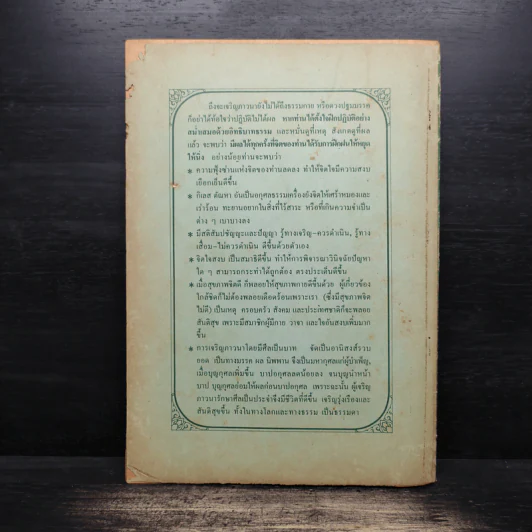 ถึงจะเจริญภาวนายังไม่ได้ถึงธรรมกาย หรือดวงปฐมมรรค
ก็อย่าได้ตัดใจว่าปฏิบัติไม่ได้ผล หากท่านได้ตั้งใจฝึกปฏิบัติอย่าง
สม่ำเสมอด้วยอิทธิบาทธรรม และหมั่นดูที่เหตุ สังเกตดูที่ผล
แล้ว จะพบว่า มีผลได้ทุกครั้งที่จิตของท่านได้รับการฝึกฝนให้หยุด
ให้นิ่ง อย่างน้อยท่านจะพบว่า
* ความฟุ้งซ่านแห่งจิตของท่านลดลง ทำให้จิตใจมีความสงบ
เยือกเย็นดีขึ้น
* กิเลส ตัณหา อันเป็นอกุศลธรรมเครื่องยังจิตให้เศร้าหมองและ
เร่าร้อน ทะยานอยากในสิ่งที่ไร้สาระ หรือที่เกินความจำเป็น
ต่าง ๆ เบาบางลง
* มีสติสัมปชัญญะและปัญญา รู้ทางเจริญ-ควรดำเนิน, รู้ทาง
เสื่อม-ไม่ควรดำเนิน ดีขึ้นด้วยตัวเอง
* จิตใจสงบ เป็นสมาธิดีขึ้น ทำให้การพิจารณาวินิจฉัยปัญหา
ใด ๆ สามารถกระทำได้ถูกต้อง ตรงประเด็นดีขึ้น
* เมื่อสุขภาพจิตดี ก็พลอยให้สุขภาพกายดีขึ้นด้วย ผู้เกี่ยวข้อง
ใกล้ชิดก็ไม่ต้องพลอยเดือดร้อนเพราะเรา (ซึ่งมีสุขภาพจิต
ไม่ดี) เป็นเหตุ ครอบครัว สังคม และประเทศชาติก็จะพลอย
สันติสุข เพราะมีสมาชิกผู้มีกาย วาจา และใจอันสงบเพิ่มมาก
ขึ้น
* การเจริญภาวนาโดยมีศีลเป็นบาท จัดเป็นอานิสงส์รวบ
ยอด เป็นทางมรรค ผล นิพพาน จึงเป็นมหากุศลแก่ผู้บำเพ็ญ,
เมื่อบุญกุศลเพิ่มขึ้น บาปอกุศลลดน้อยลง จนบุญนำหน้า
บาป บุญกุศลย่อมให้ผลก่อนบาปอกุศล เพราะฉะนั้น ผู้เจริญ
ภาวนารักษาศีลเป็นประจำจึงมีชีวิตที่ดีขึ้น เจริญรุ่งเรืองและ
สันติสุขขึ้น ทั้งในทางโลกและทางธรรม เป็นธรรมดา